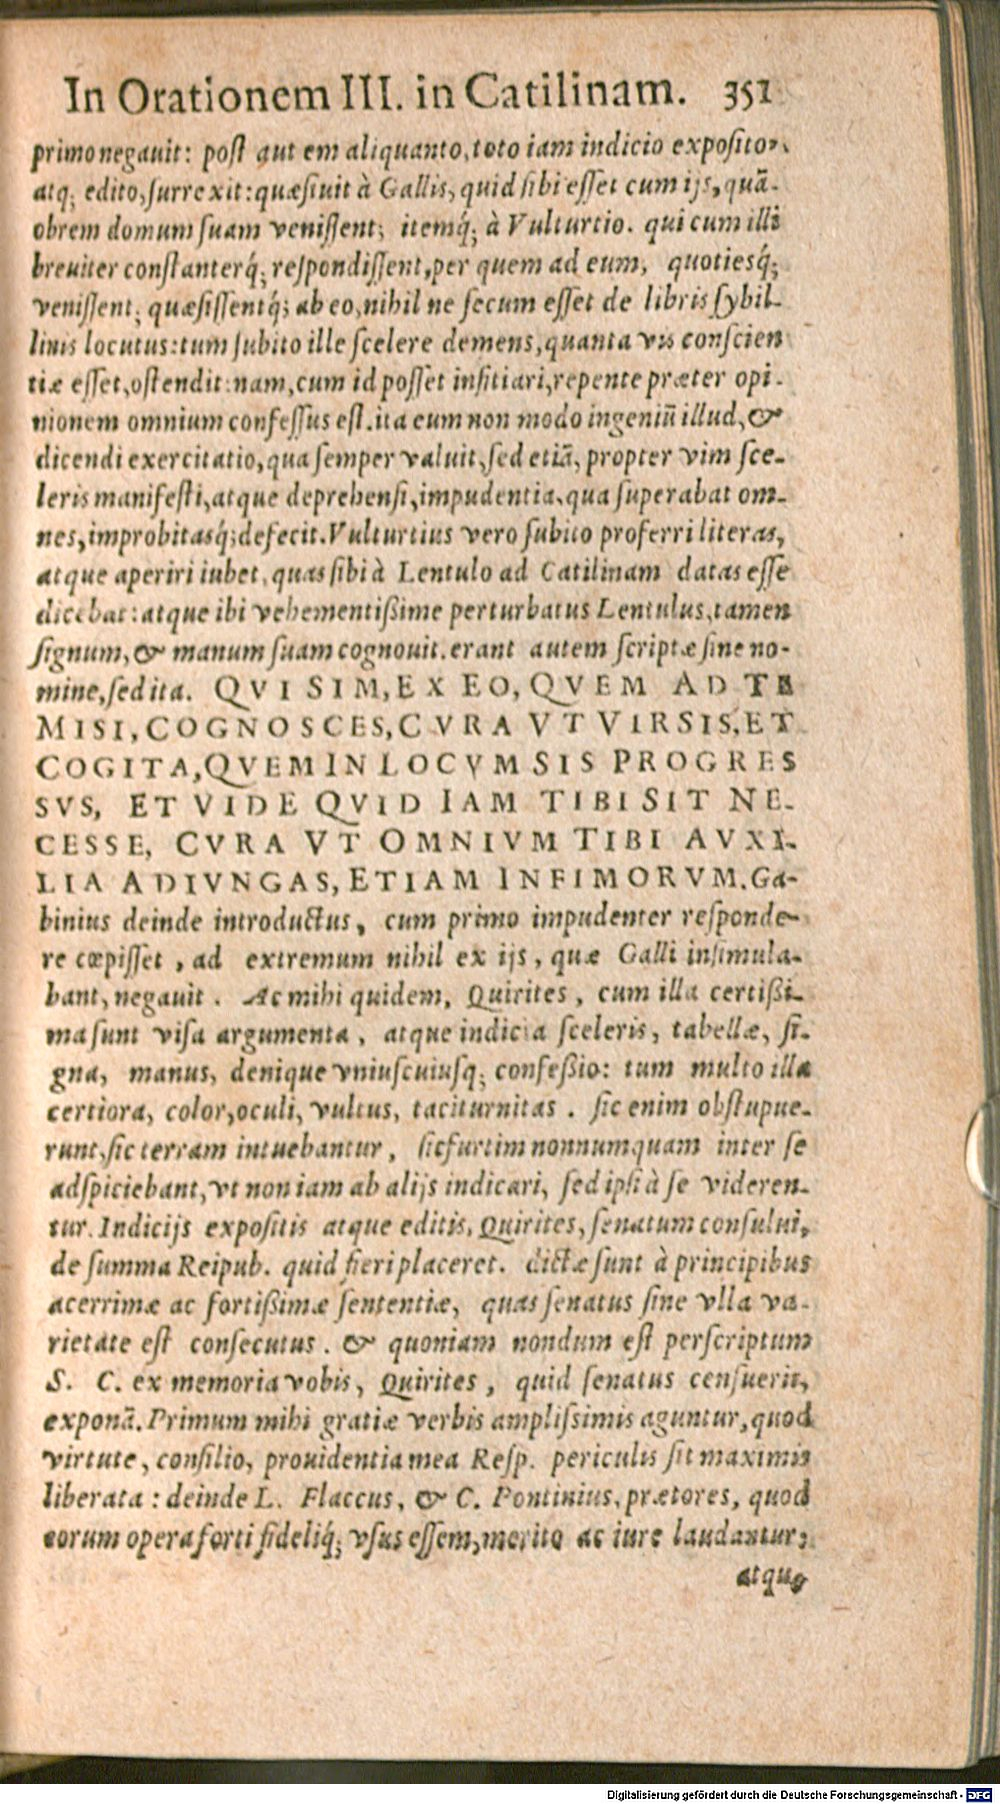 In Orationem III. in Catilinam. 351
primo negauit: post aut em aliquanto, toto iam indicio exposito,
atq; edito, surrexit: quæsiuit à Gallis, quid sibi esset cum ijs, quã-
obrem domum suam venissent; itemq́; à Vulturtio. qui cum illi
breuiter constanterq́; respondissent, per quem ad eum, quotiesq́;
venissent, quæsissentq́; ab eo, nihil ne secum esset de libris sybil-
linis locutus: tum subito ille scelere demens, quanta vis conscien
tiæ esset, ostendit: nam, cum id posset infitiari, repente præter opi-
nionem omnium confessus est. ita eum non modo ingeniũ illud, &
dicendi exercitatio, qua semper valuit, sed etiã, propter vim sce-
leris manifesti, atque deprehensi, impudentia, qua superabat om-
nes, improbitasq́; defecit. Vulturtius vero subito proferri literas,
atque aperiri iubet, quas sibi à Lentulo ad Catilinam datas esse
dicebat: atque ibi vehementißime perturbatus Lentulus, tamen
signum, & manum suam cognouit. erant autem scriptæ sine no-
mine, sed ita. QVI SIM, EX EO, QVEM AD TE
MISI, COGNOSCES, CVRA VT VIR SIS, ET
COGITA, QVEM IN LOCVM SIS PROGRES
SVS, ET VIDE QVID IAM TIBI SIT NE-
CESSE, CVRA VT OMNIVM TIBI AVXI-
LIA ADIVNGAS, ETIAM INFIMORVM. Ga-
binius deinde introductus, cum primo impudenter responde-
re cœpisset, ad extremum nihil ex ijs, quæ Galli insimula-
bant, negauit. Ac mihi quidem, Quirites, cum illa certißi-
ma sunt visa argumenta, atque indicia sceleris, tabellæ, si-
gna, manus, denique vniuscuiusq; confeßio: tum multo illa
certiora, color, oculi, vultus, taciturnitas. sic enim obstupue-
runt, sic terram intuebantur, sic furtim nonnumquam inter se
adspiciebant, vt non iam ab alijs indicari, sed ipsi à se videren-
tur. Indicijs expositis atque editis, Quirites, senatum consului,
de summa Reipub. quid fieri placeret. dictæ sunt à principibus
acerrimæ ac fortißimæ sententiæ, quas senatus sine vlla va-
rietate est consecutus. & quoniam nondum est perscriptum
S. C. ex memoria vobis, Quirites, quid senatus censuerit,
exponã. Primum mihi gratiæ verbis amplissimis aguntur, quod
virtute, consilio, prouidentia mea Resp. periculis sit maximis
liberata: deinde L. Flaccus, & C. Pontinius, prætores, quod
eorum opera forti fideliq́; vsus essem, merito ac iure laudantur;
atque
Digitalisierung gefördert durch die Deutsche Forschungsgemeinschaft - DFG